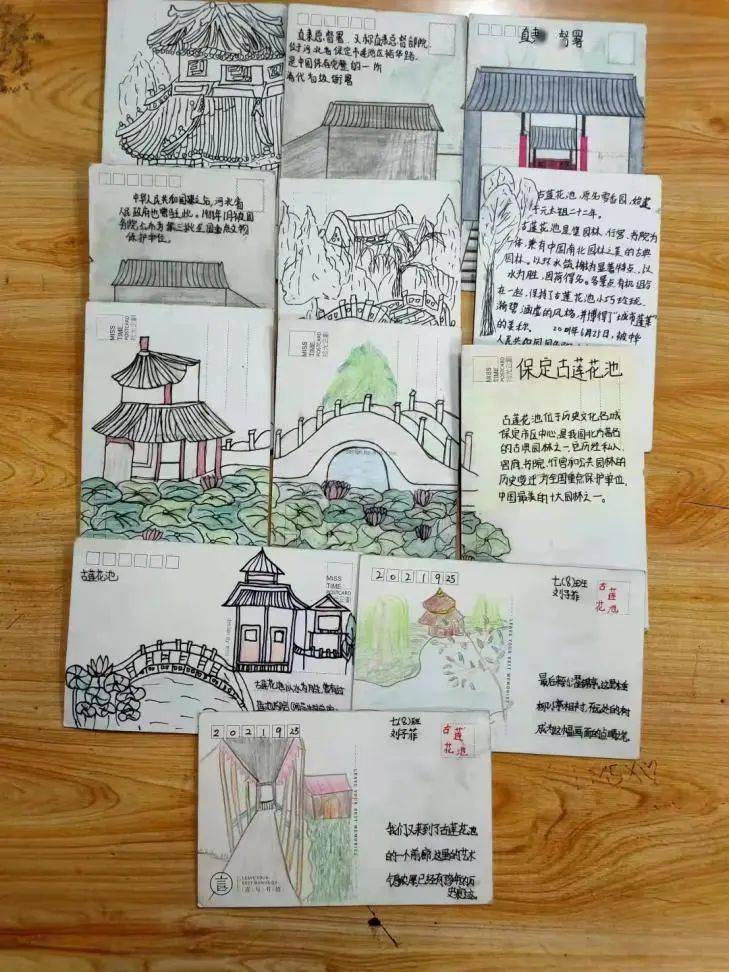 直隶总督署，又称直隶总督部院，
位于河北省保定市莲池区裕华路
是中国保存完整的一所
清代省级衙署
直隶 督署
中华人民共和国成立后，河北省
人民政府也曾驻此。1988年1月被国
务院公布为第三批全国重点文物
保护单位。
古莲花池，原名雪香园，始建
于元太祖二十二年。
古莲花池是集园林、行宫、书院为
一体，兼有中国南北园林之美的古典
园林。以环水筑榭为显著特点，以
水为胜，因荷得名。各景点有机组合
在一起，保持了古莲花池小巧玲珑
漪碧涵虚的风格，并博得了“城市蓬莱”
的美称。
MISS
TIME
POSTCARD
MISS
TIME
POSTCARD
MISS
TIME
POSTCARD
保定古莲花池
古莲花池位于历史文化名城
保定市区中心，是我国北方著名
的古典园林之一，已历经私人、
官府、书院、行宫和公共园林的
历史变迁，为全国重点保护单位，
中国最美的十大园林之一。
古莲花池
MISS
TIME
POSTCARD
古莲花池以水为胜，
2 0 2 1 9 25
七(8)班
刘子菲
古莲
花池
LEAVE YOUR BEST MEMORIES
成为这幅画面的点睛之笔
2 0 2 1 9 25
七(8)班
刘子菲
古莲
花池
LEAVE YOUR BEST MEMORIES
我们又来到了古莲花池
的一个前廊，这里的艺术
言
LEAVE YOUR
BEST MEMORIES